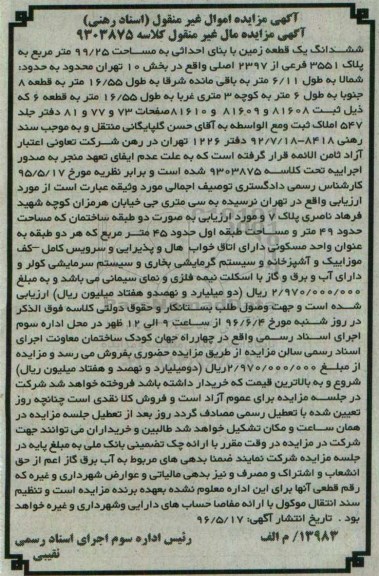 آگهی مزایده اموال غیر منقول (اسناد رهنی)
آگهی مزایده مال غیر منقول کلاسه ۹۳۰۳۸۷۵
ششدانگ یک قطعه زمین با بنای احداثی به مساحت ۹۹/۲۵ متر مربع به
پلاک ۳۵۵۱ فرعی از ۲۳۹۷ اصلی واقع در بخش ۱۰ تهران محدود به حدود:
شمالا به طول ۶/۱۱ متر به باقی مانده شرقا به طول ۱۶/۵۵ متر به قطعه ۸
جنوبا به طول ۶ متر به کوچه ۳ متری غربا به طول ۱۶/۵۵ متر به قطعه ۶ که
ذیل ثبت ۸۱۶۰۸ و ۸۱۶۰۹ و ۸۱۶۱۰صفحات ۷۳ و ۷۷ و ۸۱ دفتر جلد
۵۴۷ املاک ثبت ومع الواسطه به آقای حسن گلپایگانی منتقل و به موجب سند
رهنی ۸۴۱۸-۹۲/۷/۱۸ دفتر ۱۲۲۶ تهران در رهن شرکت تعاونی اعتبار
آزاد ثامن الائمه قرار گرفته است که به علت عدم ایفای تعهد منجر به صدور
اجراییه تحت کلاسه ۹۳۰۳۸۷۵ شده است و برابر نظریه مورخ ۹۵/۵/۱۷
کارشناس رسمی دادگستری توصیف اجمالی مورد وثیقه عبارت است از مورد
ارزیابی واقع در تهران نرسیده به سی متری جی خیابان هرمزان کوچه شهید
فرهاد ناصری پلاک ۷ و مورد ارزیابی به صورت دو طبقه ساختمان که مساحت
حدود ۴۹ متر و مساحت طبقه اول حدود ۴۵ متر مربع که هر دو طبقه به
عنوان واحد مسکونی دارای اتاق خواب هال و پذیرایی و سرویس کامل -کف
موزاییک و آشپزخانه و سیستم گرمایشی بخاری و سیستم سرمایشی کولر و
دارای آب و برق و گاز با اسکلت نیمه فلزی و نمای سیمانی می باشد و به مبلغ
۲/۹۷۰/۰۰۰/۰۰۰ ریال (دو میلیارد و نهصدو هفتاد میلیون ریال) ارزیابی
شده است و جهت وصول طلب بستانکار و حقوق دولتی کلاسه فوق الذکر
در روز شنبه مورخ ۹۶/۶/۴ از ساعت ۹ الی ۱۲ ظهر در محل اداره سوم
اجرای اسناد رسمی واقع در چهارراه جهان کودک ساختمان معاونت اجرای
اسناد رسمی سالن مزایده از طریق مزایده حضوری بفروش می رسد و مزایده
از مبلغ ۲/۹۷۰/۰۰۰/۰۰۰ریال (دومیلیارد و نهصد و هفتاد میلیون ریال)
شروع و به بالاترین قیمت که خریدار داشته باشد فروخته خواهد شد شرکت
در جلسه مزایده برای عموم آزاد است و فروش کلا نقدی است چنانچه روز
تعیین شده با تعطیل رسمی مصادف گردد روز بعد از تعطیل جلسه مزایده در
همان ساعت و مکان تشکیل خواهد شد طالبین و خریداران می توانند جهت
شرکت در مزایده در وقت مقرر با ارائه چک تضمینی بانک ملی به مبلغ پایه در
جلسه مزایده شرکت نمایند ضمنا بدهی های مربوط به آب برق گاز اعم از حق
انشعاب و اشتراک و مصرف و نیز بدهی مالیاتی و عوارض شهرداری و غیره که
رقم قطعی آنها برای این اداره معلوم نشده بعهده برنده مزایده است و تنظیم
سند انتقال موکول با ارائه مفاصا حساب های دارایی وشهرداری و غیره خواهد
بود . تاریخ انتشار آگهی: ۹۶/۵/۱۷
۱۳۹۸۳/ م الف رئیس اداره سوم اجرای اسناد رسمی
نقیبی